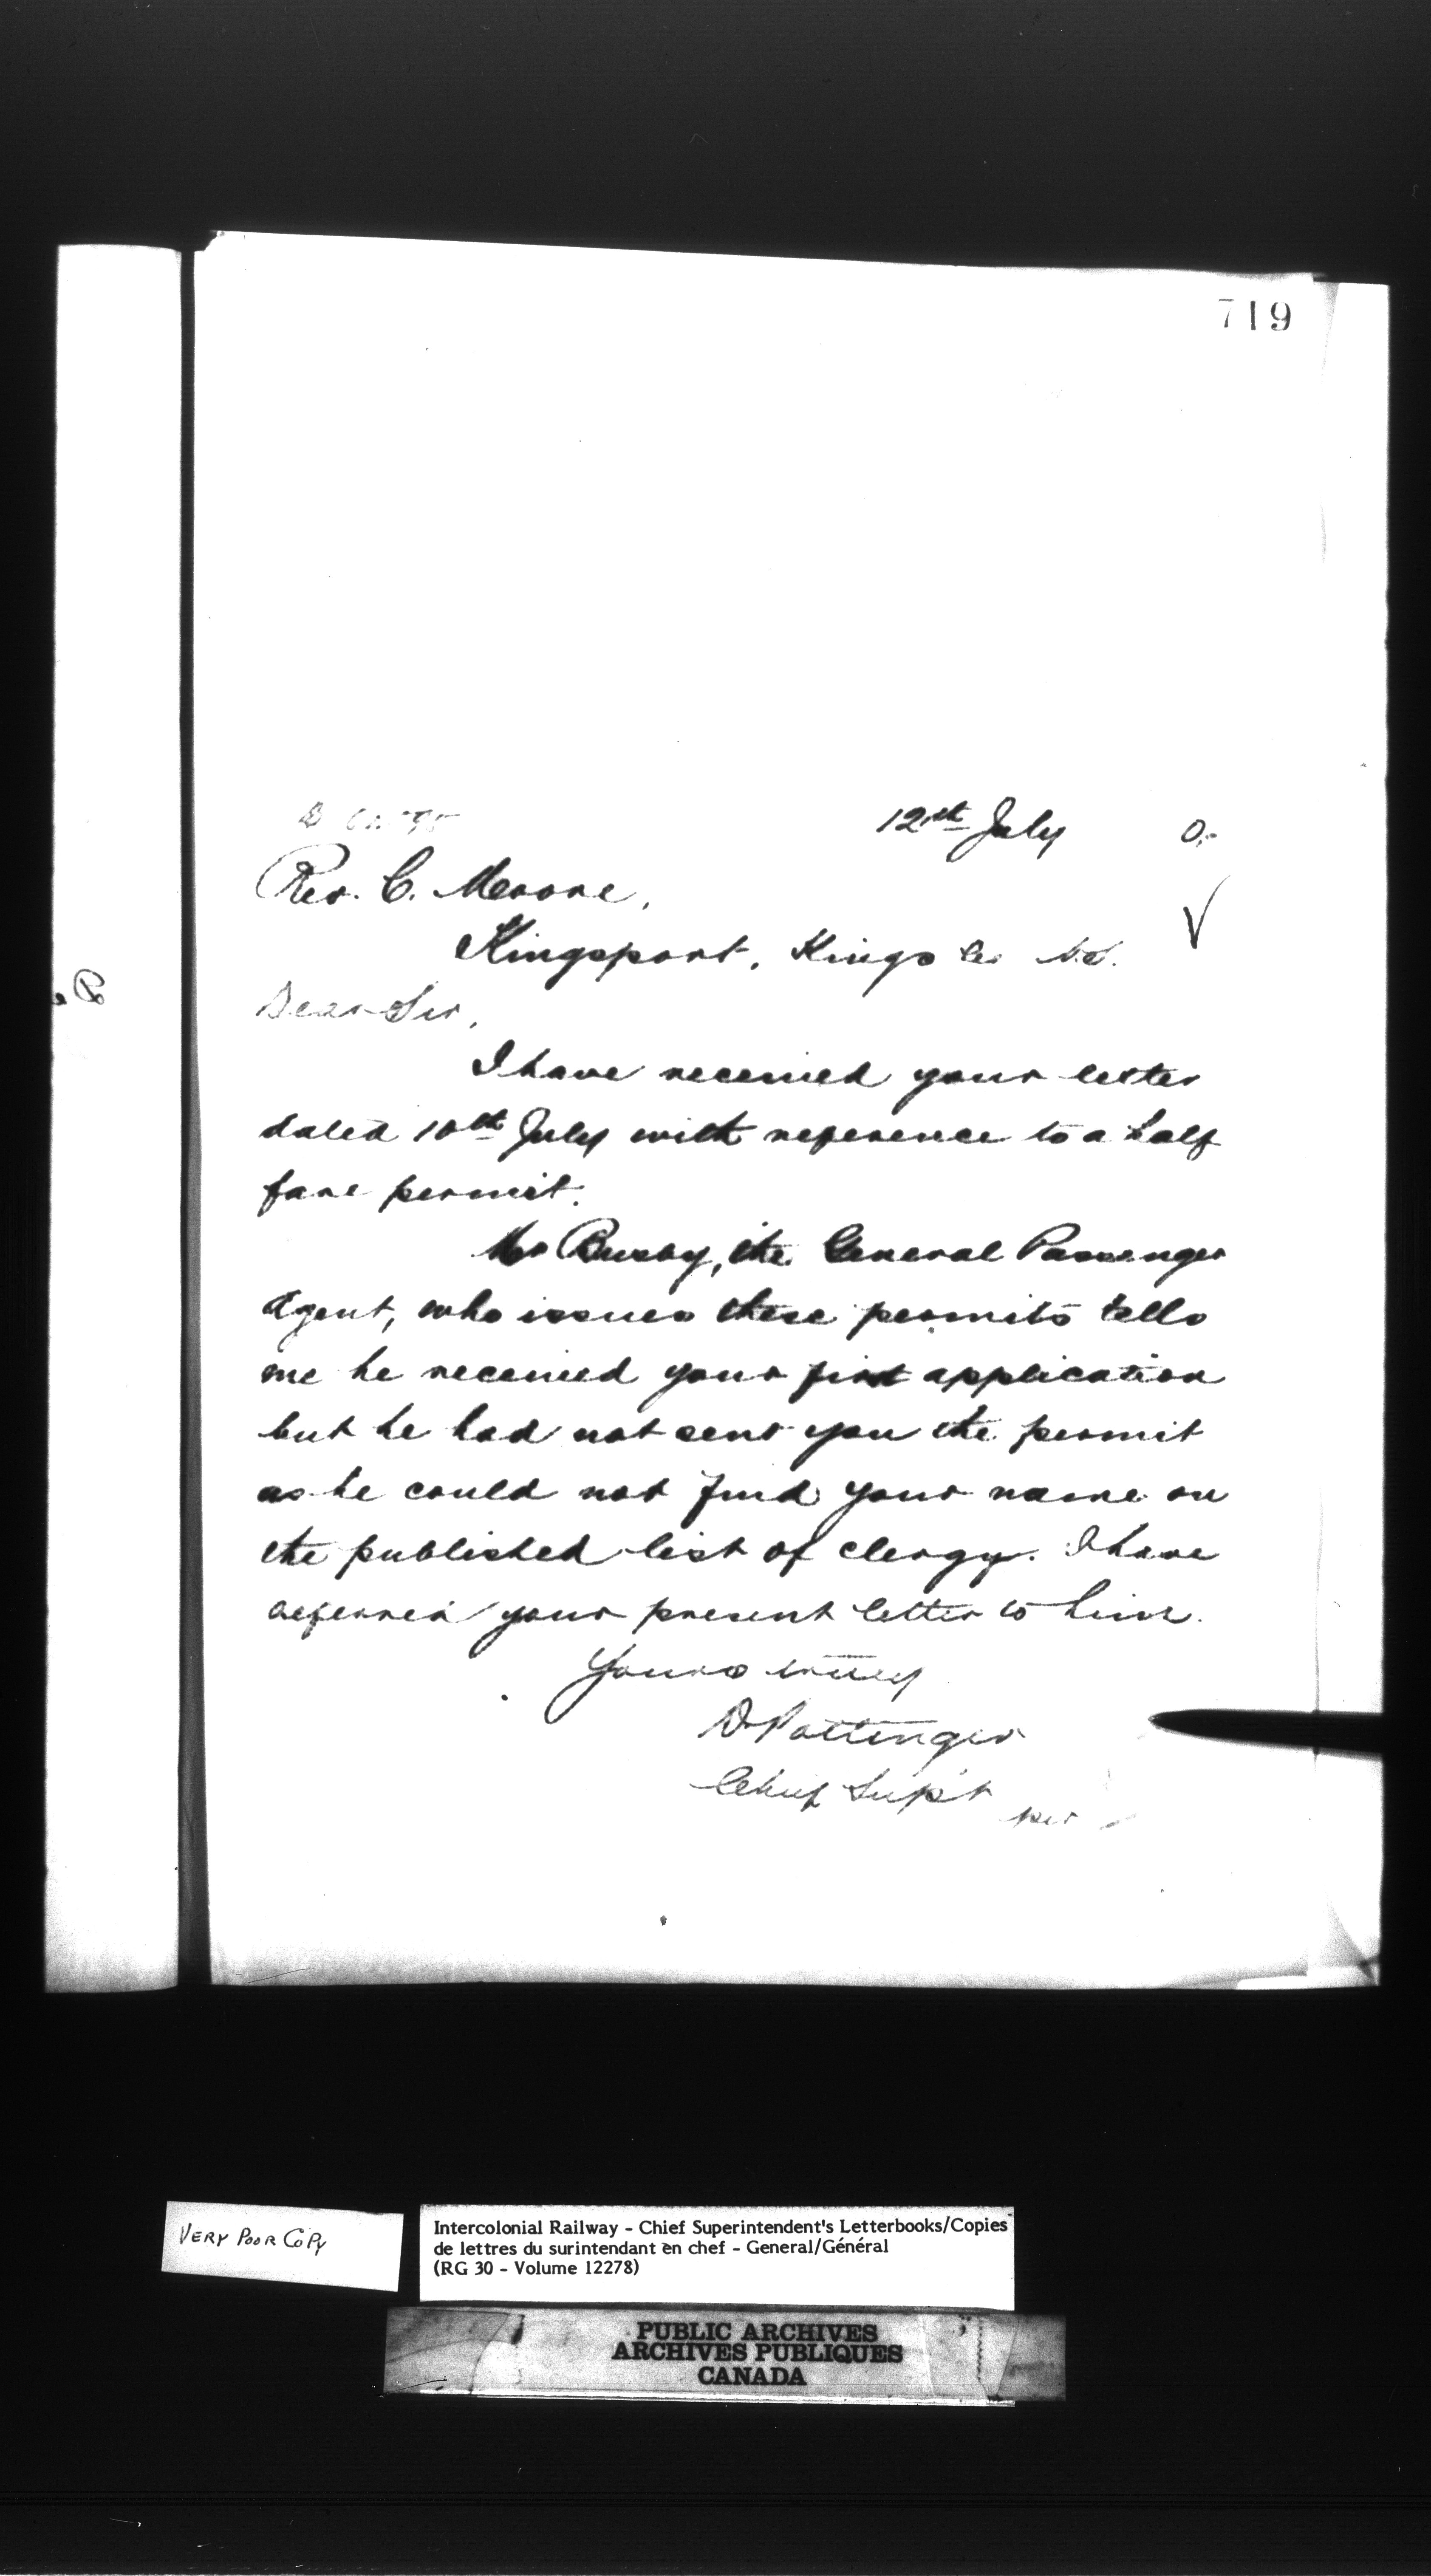 719
12th July
Rev. C. Moore,
Kingsport, Kings Co. N.S.
Dear Sir,
I have received your letter
dated 10th July with reference to a half
fare permit.
Mr Busby, the General Passenger
Agent, who issues these permits tells
me he received your first application
but he had not sent you the permit
as he could not find your name on
the published list of clergy. I have
referred your present letter to him.
Yours truly
D Pottinger
Chief Supt
per
VERY POOR COPY
Intercolonial Railway - Chief Superintendent's Letterbooks/Copies
de lettres du surintendant en chef - General/Général
(RG 30 - Volume 12278)
PUBLIC ARCHIVES
ARCHIVES PUBLIQUES
CANADA